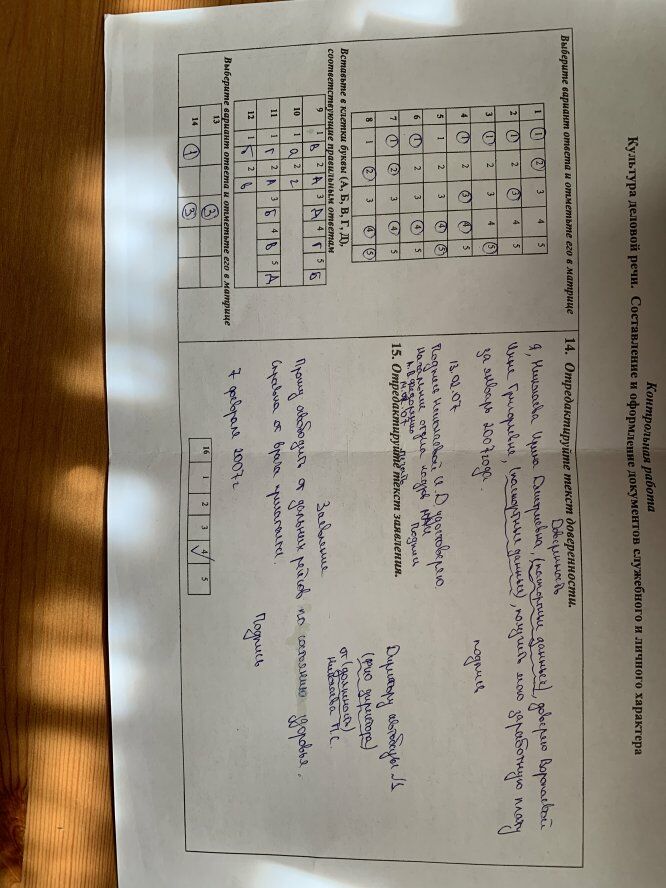 Контрольная работа
Культура деловой речи. Составление и оформление документов служебного и личного характера
Выберите вариант ответа и отметьте его в матрице
1 1 2 3 4 5
2 1 2 3 4 5
3 1 2 3 4 5
4 1 2 3 4 5
5 1 2 3 4 5
6 1 2 3 4 5
7 1 2 3 4 5
8 1 2 3 4 5
Вставьте в клетки буквы (А, Б, В, Г, Д),
соответствующие правильным ответам
9 1 В 2 А 3 Д 4 Г 5 Б
10 1 а 2 г
11 1 Г 2 А 3 Б 4 В 5 Д
12 1 Б 2 В
Выберите вариант ответа и отметьте его в матрице
13 3
14 1 3
14. Отредактируйте текст доверенности.
Доверенность
Я, Николаева Ирина Дмитриевна, (паспортные данные), доверяю Воропаевой
Инне Григорьевне, (паспортные данные), получить мою заработную плату
за январь 2007 года.
13.02.07 подпись
Подпись Николаевой И.Д удостоверяю
Начальник отдела кадров Подпись
печать
15. Отредактируйте текст заявления.
Директору автобазы №1
(фио директора)
от (должность)
Николаева П.С.
Заявление
Прошу освободить от дальних рейсов по состоянию здоровья.
Справка от врача прилагается.
7 февраля 2007г Подпись
16 1 2 3 4 5